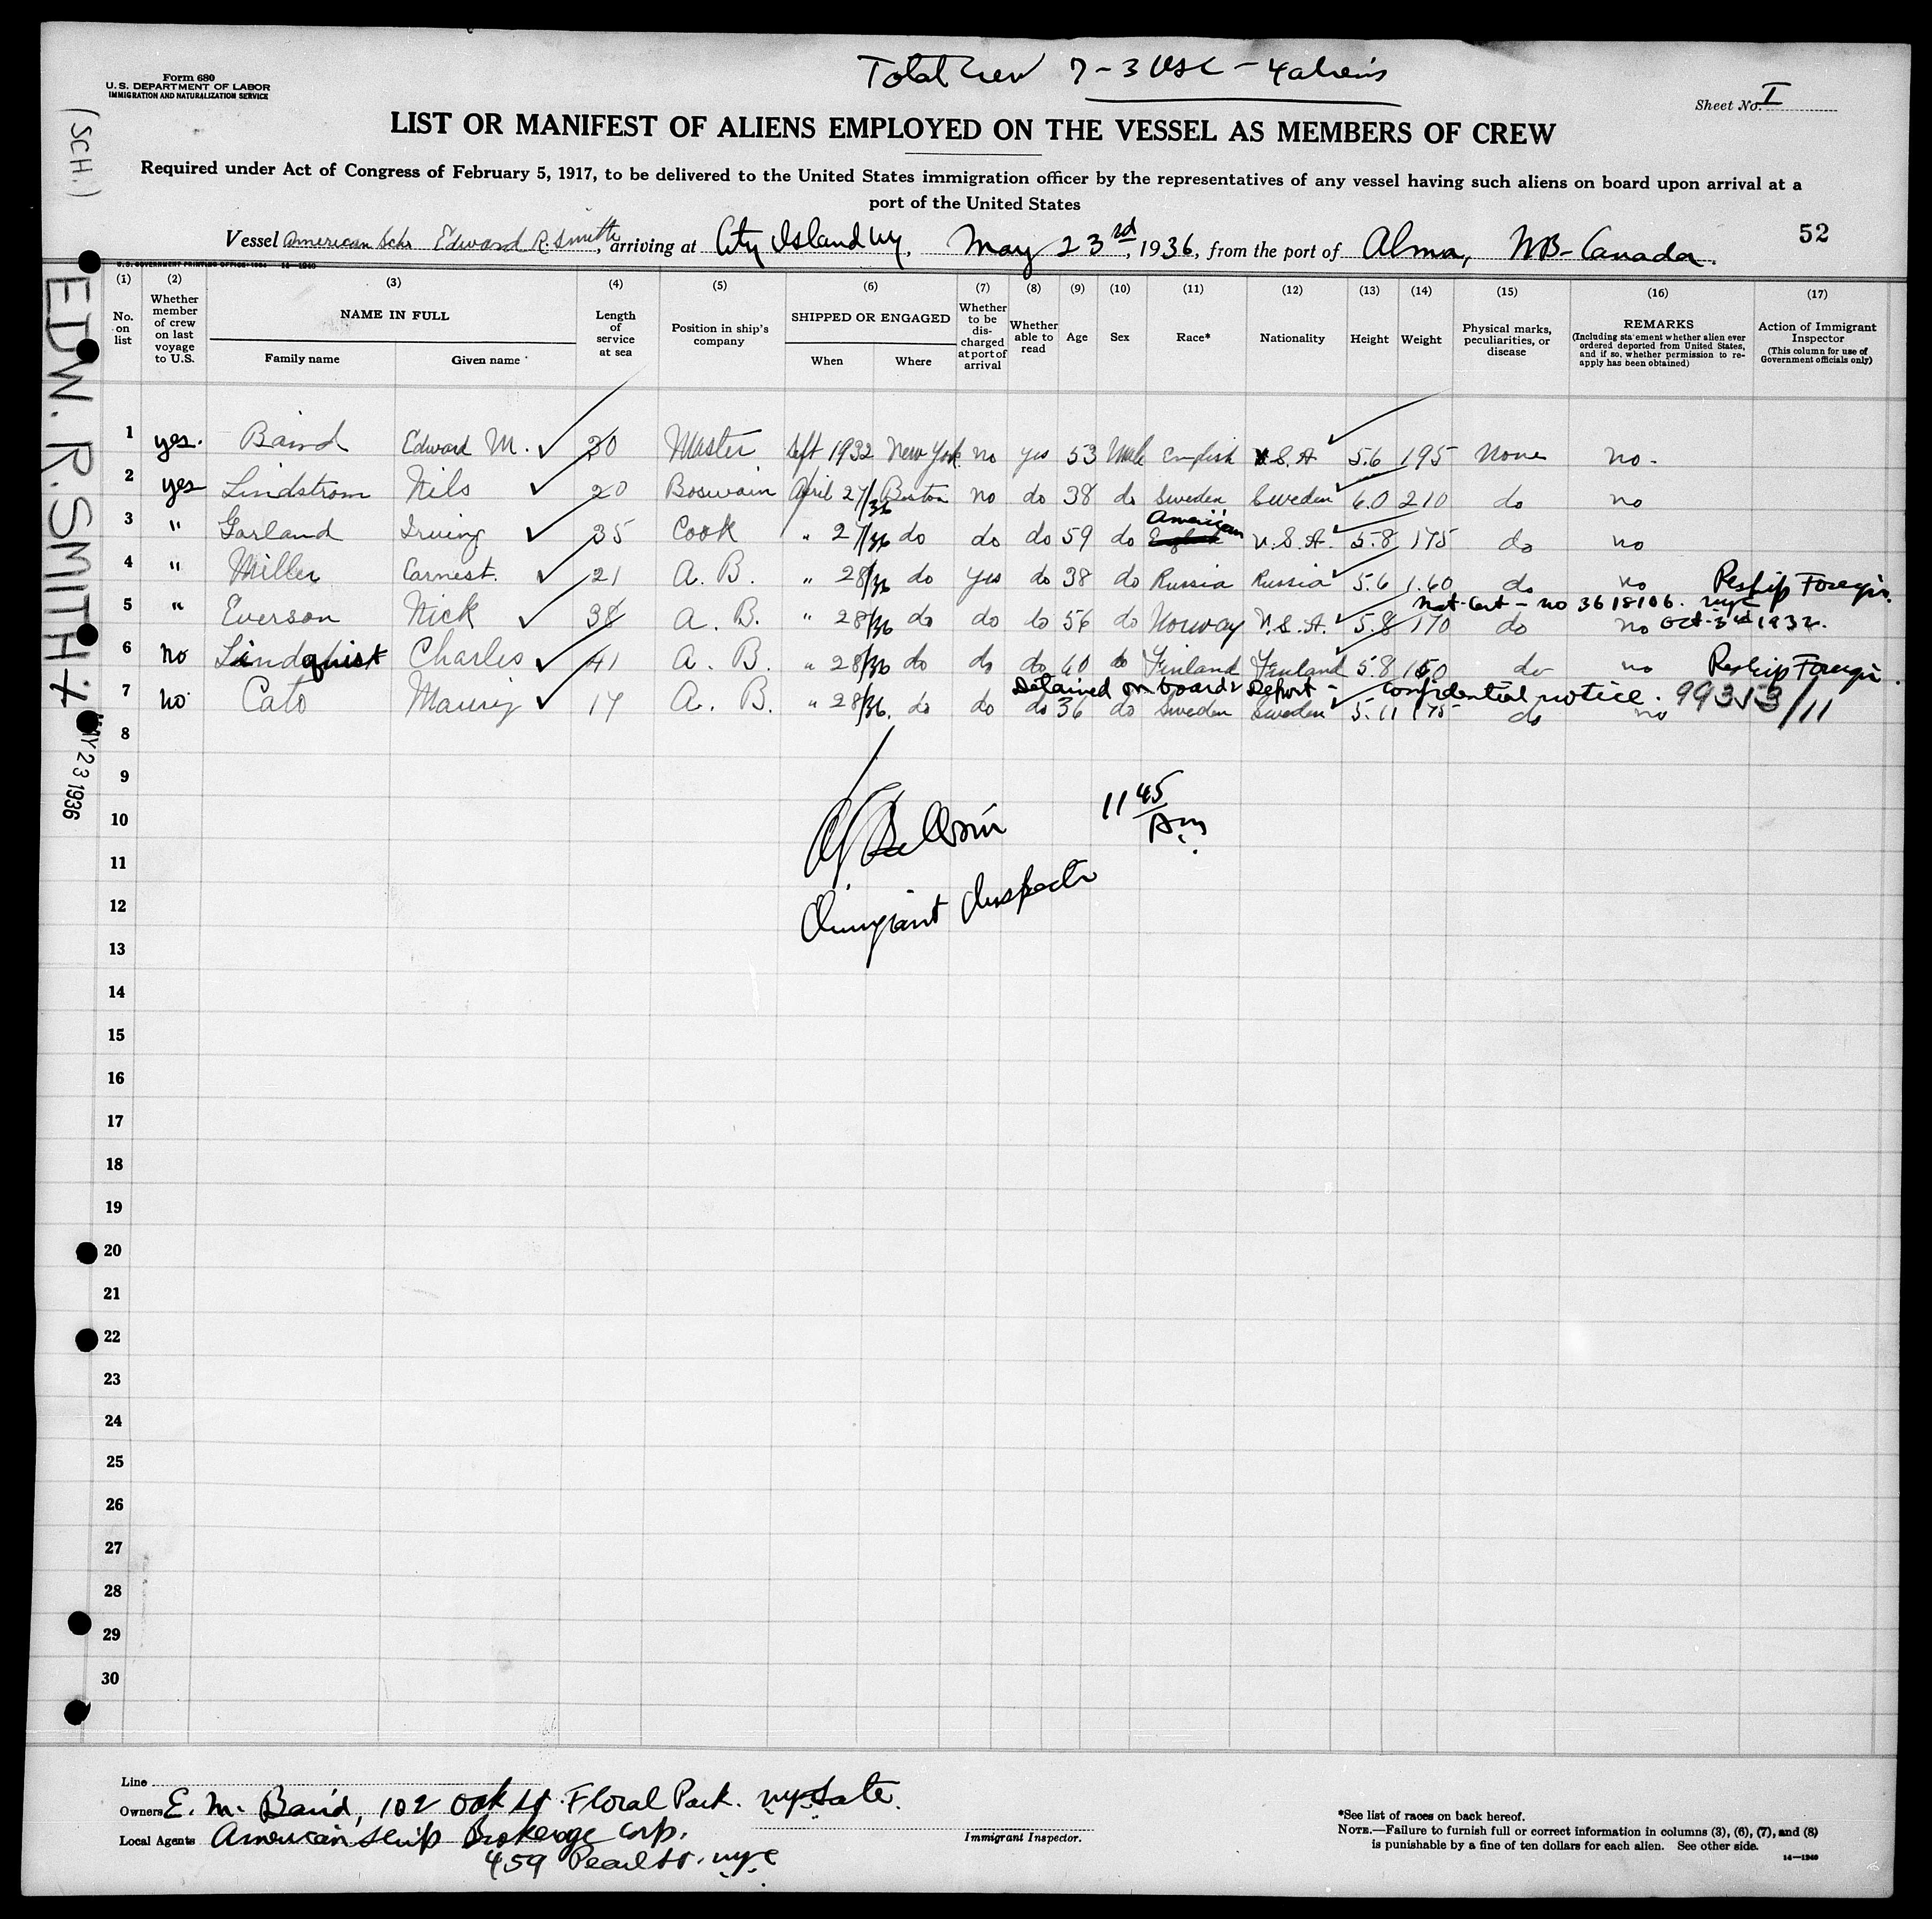 Total Crew 7 - 3 USC - 4 aliens
Form 680
U. S. DEPARTMENT OF LABOR
IMMIGRATION AND NATURALIZATION SERVICE
Sheet No. I
(SCH.)
LIST OR MANIFEST OF ALIENS EMPLOYED ON THE VESSEL AS MEMBERS OF CREW
Required under Act of Congress of February 5, 1917, to be delivered to the United States immigration officer by the representatives of any vessel having such aliens on board upon arrival at a
port of the United States
Vessel American Schr Edward R. Smith, arriving at City Island NY, May 23rd, 1936, from the port of Alma, NB - Canada.
52
EDW. R. SMITH
MAY 23 1936
(1) (2) (3) (4) (5) (6) (7) (8) (9) (10) (11) (12) (13) (14) (15) (16) (17)
No. on list
Whether member of crew on last voyage to U.S.
NAME IN FULL
Family name Given name
Length of service at sea
Position in ship's company
SHIPPED OR ENGAGED
When Where
Whether to be discharged at port of arrival
Whether able to read
Age
Sex
Race*
Nationality
Height
Weight
Physical marks, peculiarities, or disease
REMARKS
(Including statement whether alien ever ordered deported from United States, and if so, whether permission to reapply has been obtained)
Action of Immigrant Inspector
(This column for use of Government officials only)
1 yes. Baird Edward M. 30 Master Sept 1932 New York no yes 53 Male English U.S.A. 5.6 195 None no.
2 yes Lindstrom Nils 20 Boswain April 27/36 Boston no do 38 do Sweden Sweden 6.0 210 do no
3 " Garland Irving 35 Cook " 27/36 do do do 59 do American U.S.A. 5.8 175 do no
4 " Miller Earnest. 21 A. B. " 28/36 do yes do 38 do Russia Russia 5.6 1.60 do no Reship Foreign.
Nat. Cert - no 3618106. NYC
Oct. 3rd 1932.
5 " Everson Nick 38 A. B. " 28/36 do do do 56 do Norway U.S.A. 5.8 170 do no
6 no Lindquist Charles 41 A. B. " 28/36 do do do 60 do Finland Finland 5.8 150 do no Reship Foreign.
Detained on board & Deport - confidential notice. 99313/11
7 no Cato 17 A. B. " 28/36. do do do 36 do Sweden Sweden 5.11 175 do no
8
9
10
11
12
13
14
15
16
17
18
19
20
21
22
23
24
25
26
27
28
29
30
11 45/Am.
Immigrant Inspector
Line
Owners E. M. Baird, 102 Oak St. Floral Park. NY State.
Local Agents American Ship Brokerage Corp.
459 Pearl St. NYC
Immigrant Inspector.
*See list of races on back hereof.
NOTE.—Failure to furnish full or correct information in columns (3), (6), (7), and (8)
is punishable by a fine of ten dollars for each alien. See other side.
14—1940